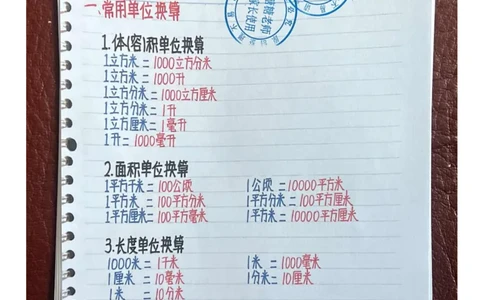 一、常用单位换算
糖糖老师
家长使用
1.体(容)积单位换算
1立方米=1000立方分米
1立方米=1000升
1立方分米=1000立方厘米
1立方分米=1升
1立方厘米=1毫升
1升=1000毫升
2.面积单位换算
1平方千米=100公顷 1公顷=10000平方米
1平方米=100平方分米 1平方分米=100平方厘米
1平方厘米=100平方毫米 1平方米=10000平方厘米
3.长度单位换算
1000米=1千米 1米=1000毫米
1厘米=10毫米 1分米=10厘米
1米=10分米